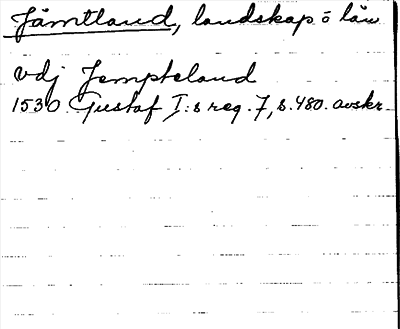 Jämtland, landskap o län
vdj Jempteland
1530 Gustaf I:s reg. 7, s. 480. avskr.